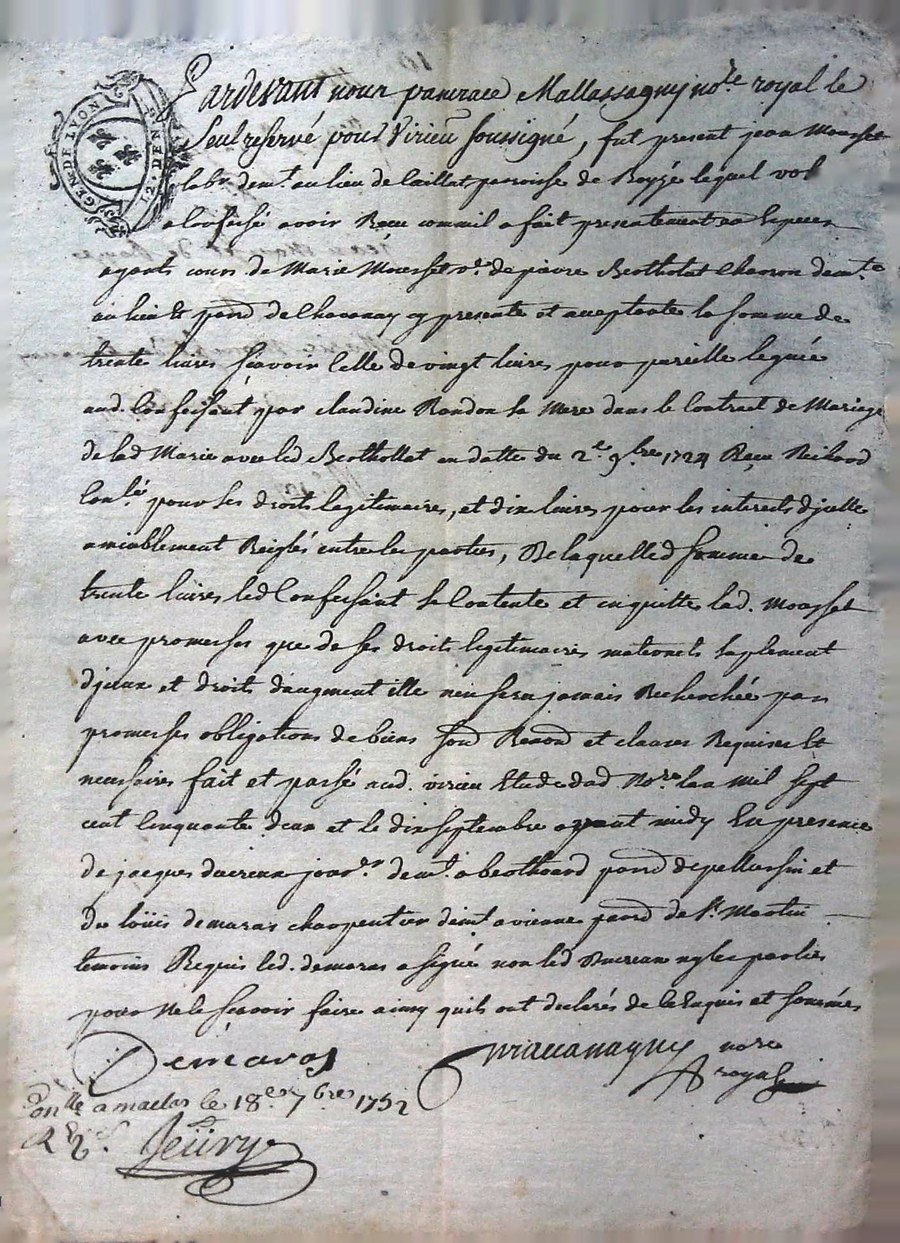 GEN. DE LYON
12. DEN.
Pardevant nous pancrace Mallassagny no.re royal le
seul reservé pour Virieu soussigné, fut present jean Mousset
lab.r dem.t au lieu de laillat parroisse de Royzé lequel
a confessé avoir Receu comme il a fait presentement en Especes
ayants cours de Marie Mousset v.e de pierre Berthollat charron dem.te
au lieu et parr.d de Chavanay cy presente et acceptante la somme de
trente livres scavoir Celle de vingt livres pour pareille leguée
aud. Confessant par claudine Rondon sa Mere dans le Contract de Mariage
de lad Marie avec led Berthollat en datte du 2.e 9.bre 1724 Receu Richard
pour ses droits legitimaires, et dix livres pour les interests d'jcelle
amiablement Reiglés entre les parties, De laquelle d somme de
trente livres led Confessant se Contente et en quitte lad. Mousset
avec promesses que de ses droits legitimaires maternels suplement
d'jceux et droits d'augment elle n'en sera jamais Recherchée par
promesses obligations de biens Renon et clauses Requises et
necessaires fait et passé aud. virieu Etude dud. No.re lan mil sept
cent Cinquante deux et le dix septembre avant midy En presence
de jacques ducreux jour.r dem.t a berthoard parr.d de pellussin et
de loüis demaras charpentier dem.t a vienne parr.d de S.t Martin
temoins Requis led. demaras a signé non led Ducreux ny les parties
pour ne le scavoir faire ainsy quils ont declarés de ce Enquis et sommés
Demaras
Mallassagny nore
royal
Con.llé a maclas le 18.e 7.bre 1752
Jeüvry